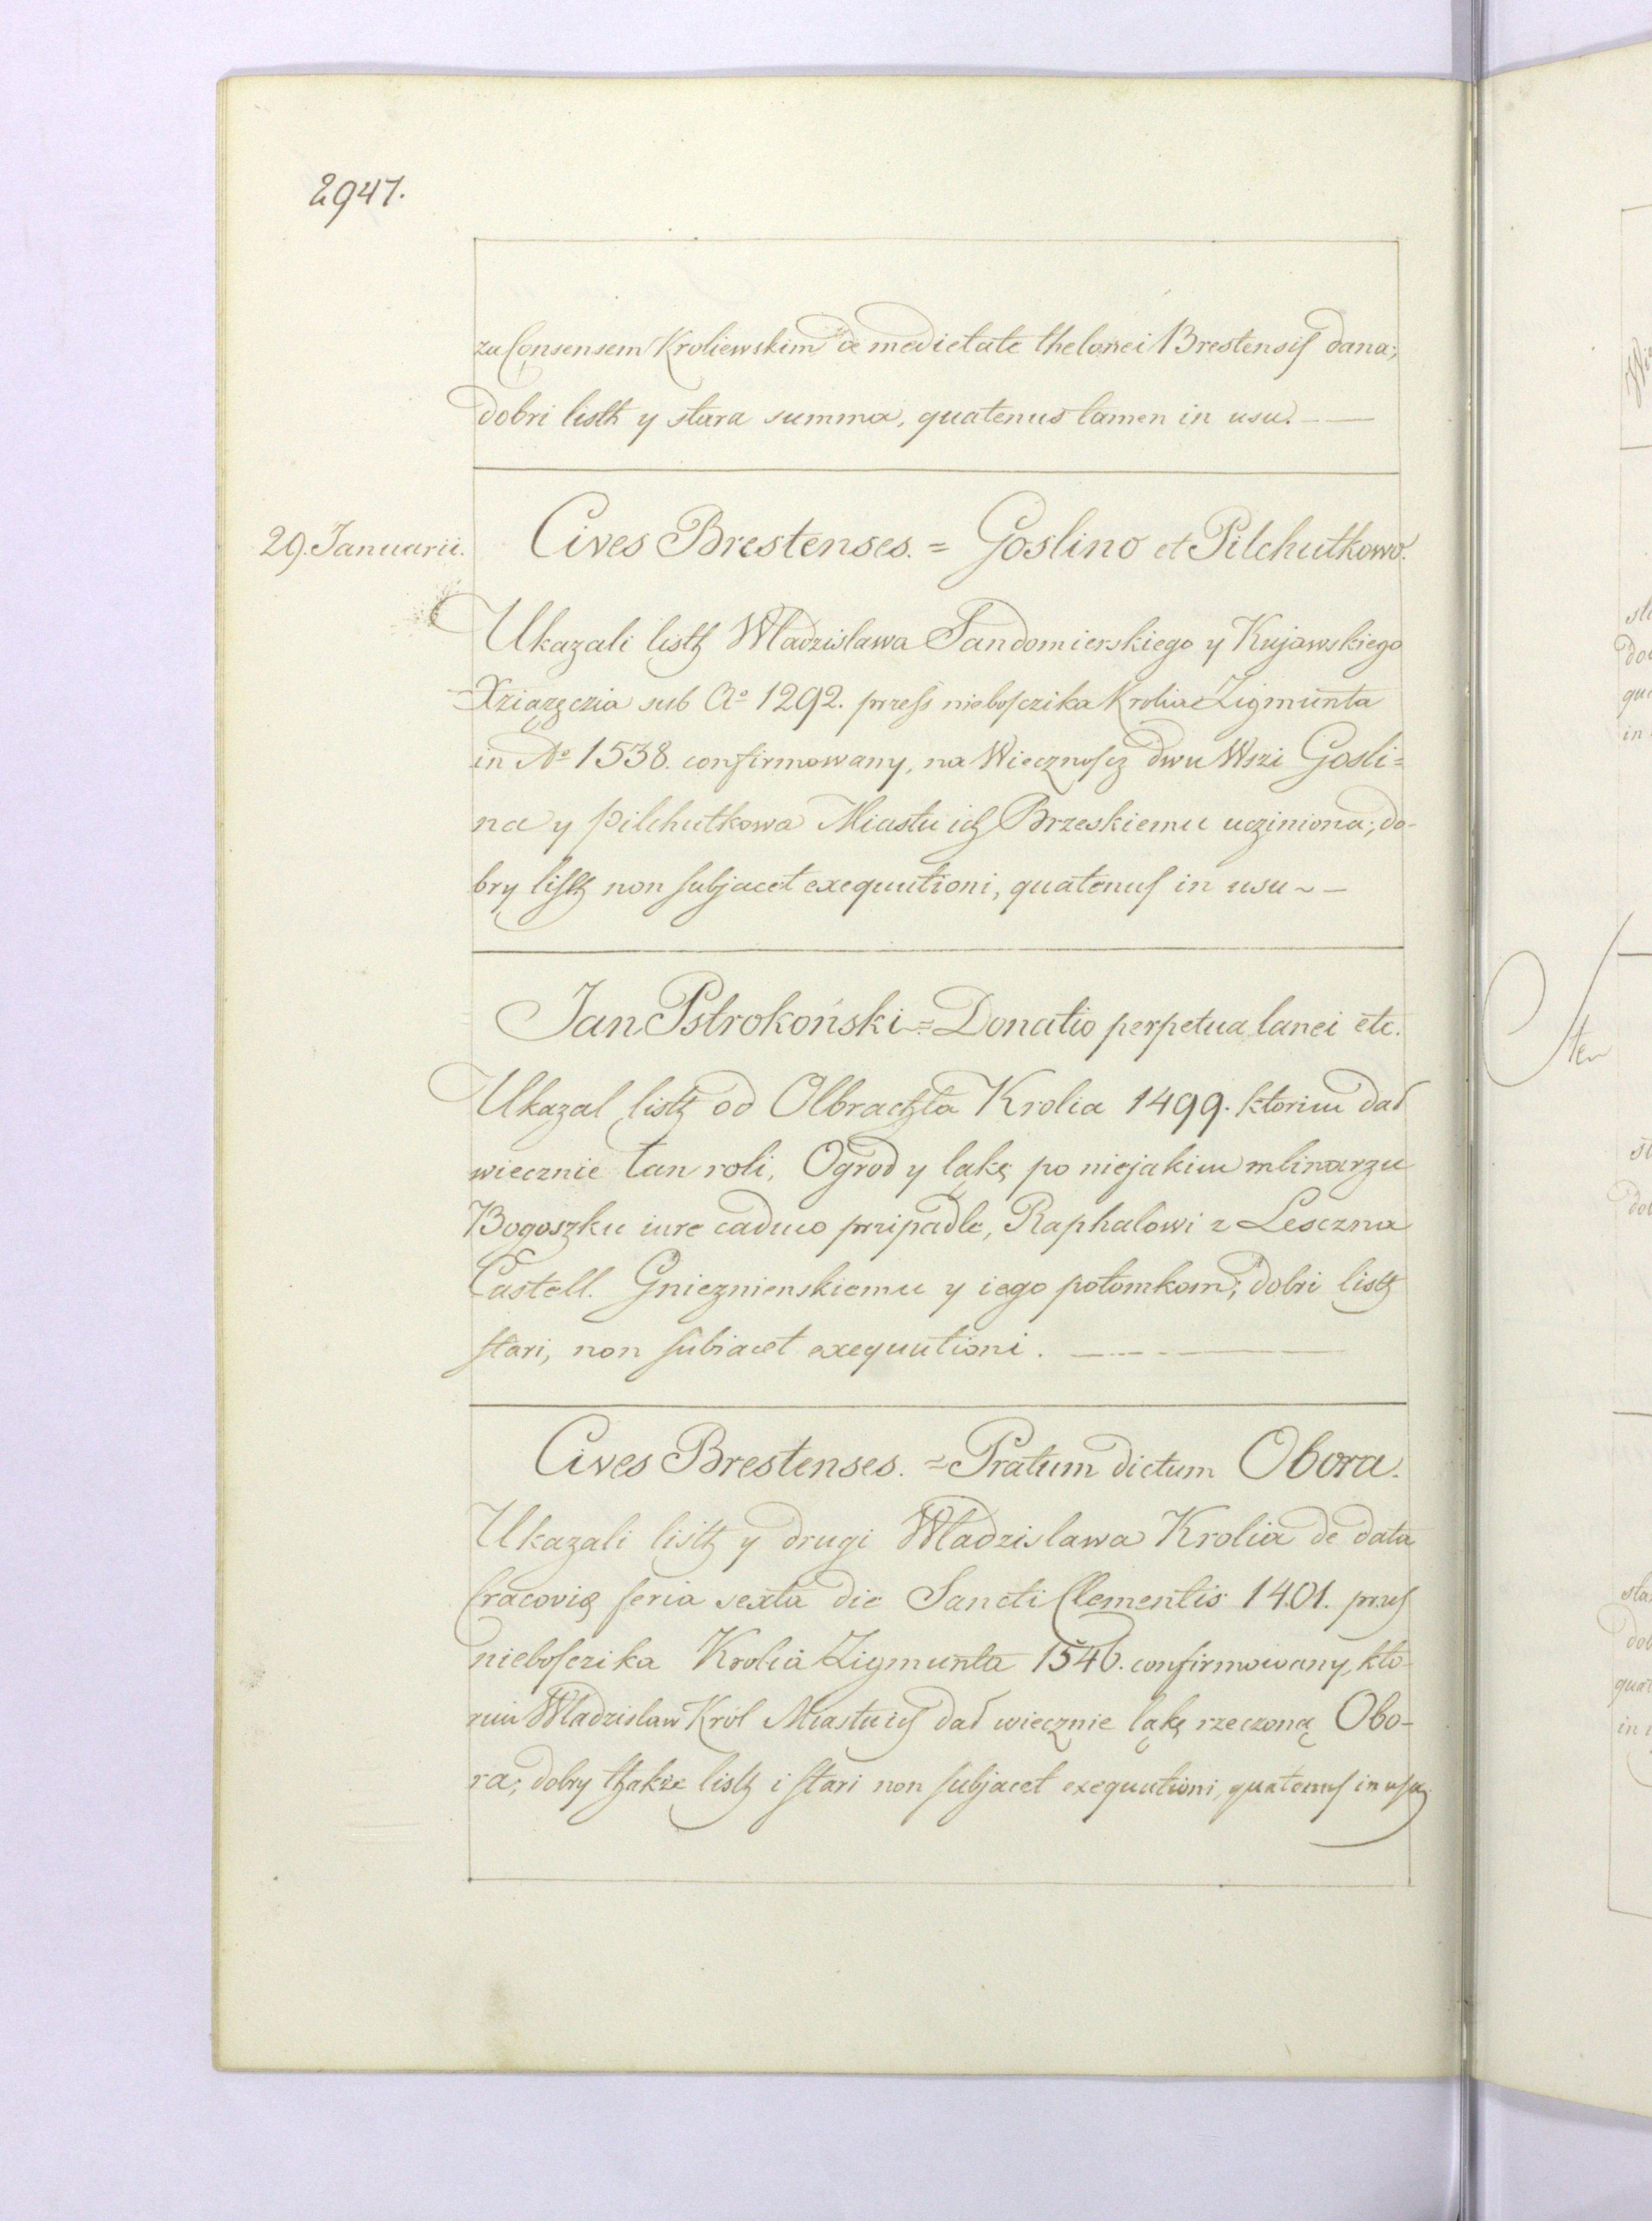 2947.
za Consensem Kroliewskim de medietate thelonei Brestensis dana;
dobri listh y stara summa, quatenus tamen in usu. —
29. Januarii.
Cives Brestenses. = Goslino et Pilchutkowo.
Ukazali listh Wladzislawa Sandomierskiego y Kujawskiego
Xziązęczia sub Aº 1292. przess nieboszczika Krolia Zigmunta
in Aº 1538. confirmowany, na Wiecznoscz dwu Wszi Gosli=
na y Pilchutkowa Miastu ich Brzeskiemu ucziniona; do-
bry listh non subjacet exequutioni, quatenus in usu ~ —
Jan Pstrokoński = Donatio perpetua lanei etc.
Ukazal listh od Olbrachta Krolia 1499. ktorim dał
wiecznie łan roli, Ogrod y ląkę po niejakim mlinarzu
Bogoszku iure caduco przipadle, Raphalowi z Leszczna
Castell. Gnieznienskiemu y iego potomkom; dobri listh
stari, non subiacet exequutioni. —
Cives Brestenses. = Pratum dictum Obora.
Ukazali listh y drugi Wladzislawa Krolia de data
Cracovię feria sexta die Sancti Clementis 1401. przes
nieboszczika Krolia Zigmunta 1546. confirmowany, kto-
rim Wladzislaw Król Miastu ich dał wiecznie łąkę rzeczoną Obo-
ra; dobry thakże listh i stari non subjacet exequutioni, quatenus in usu.